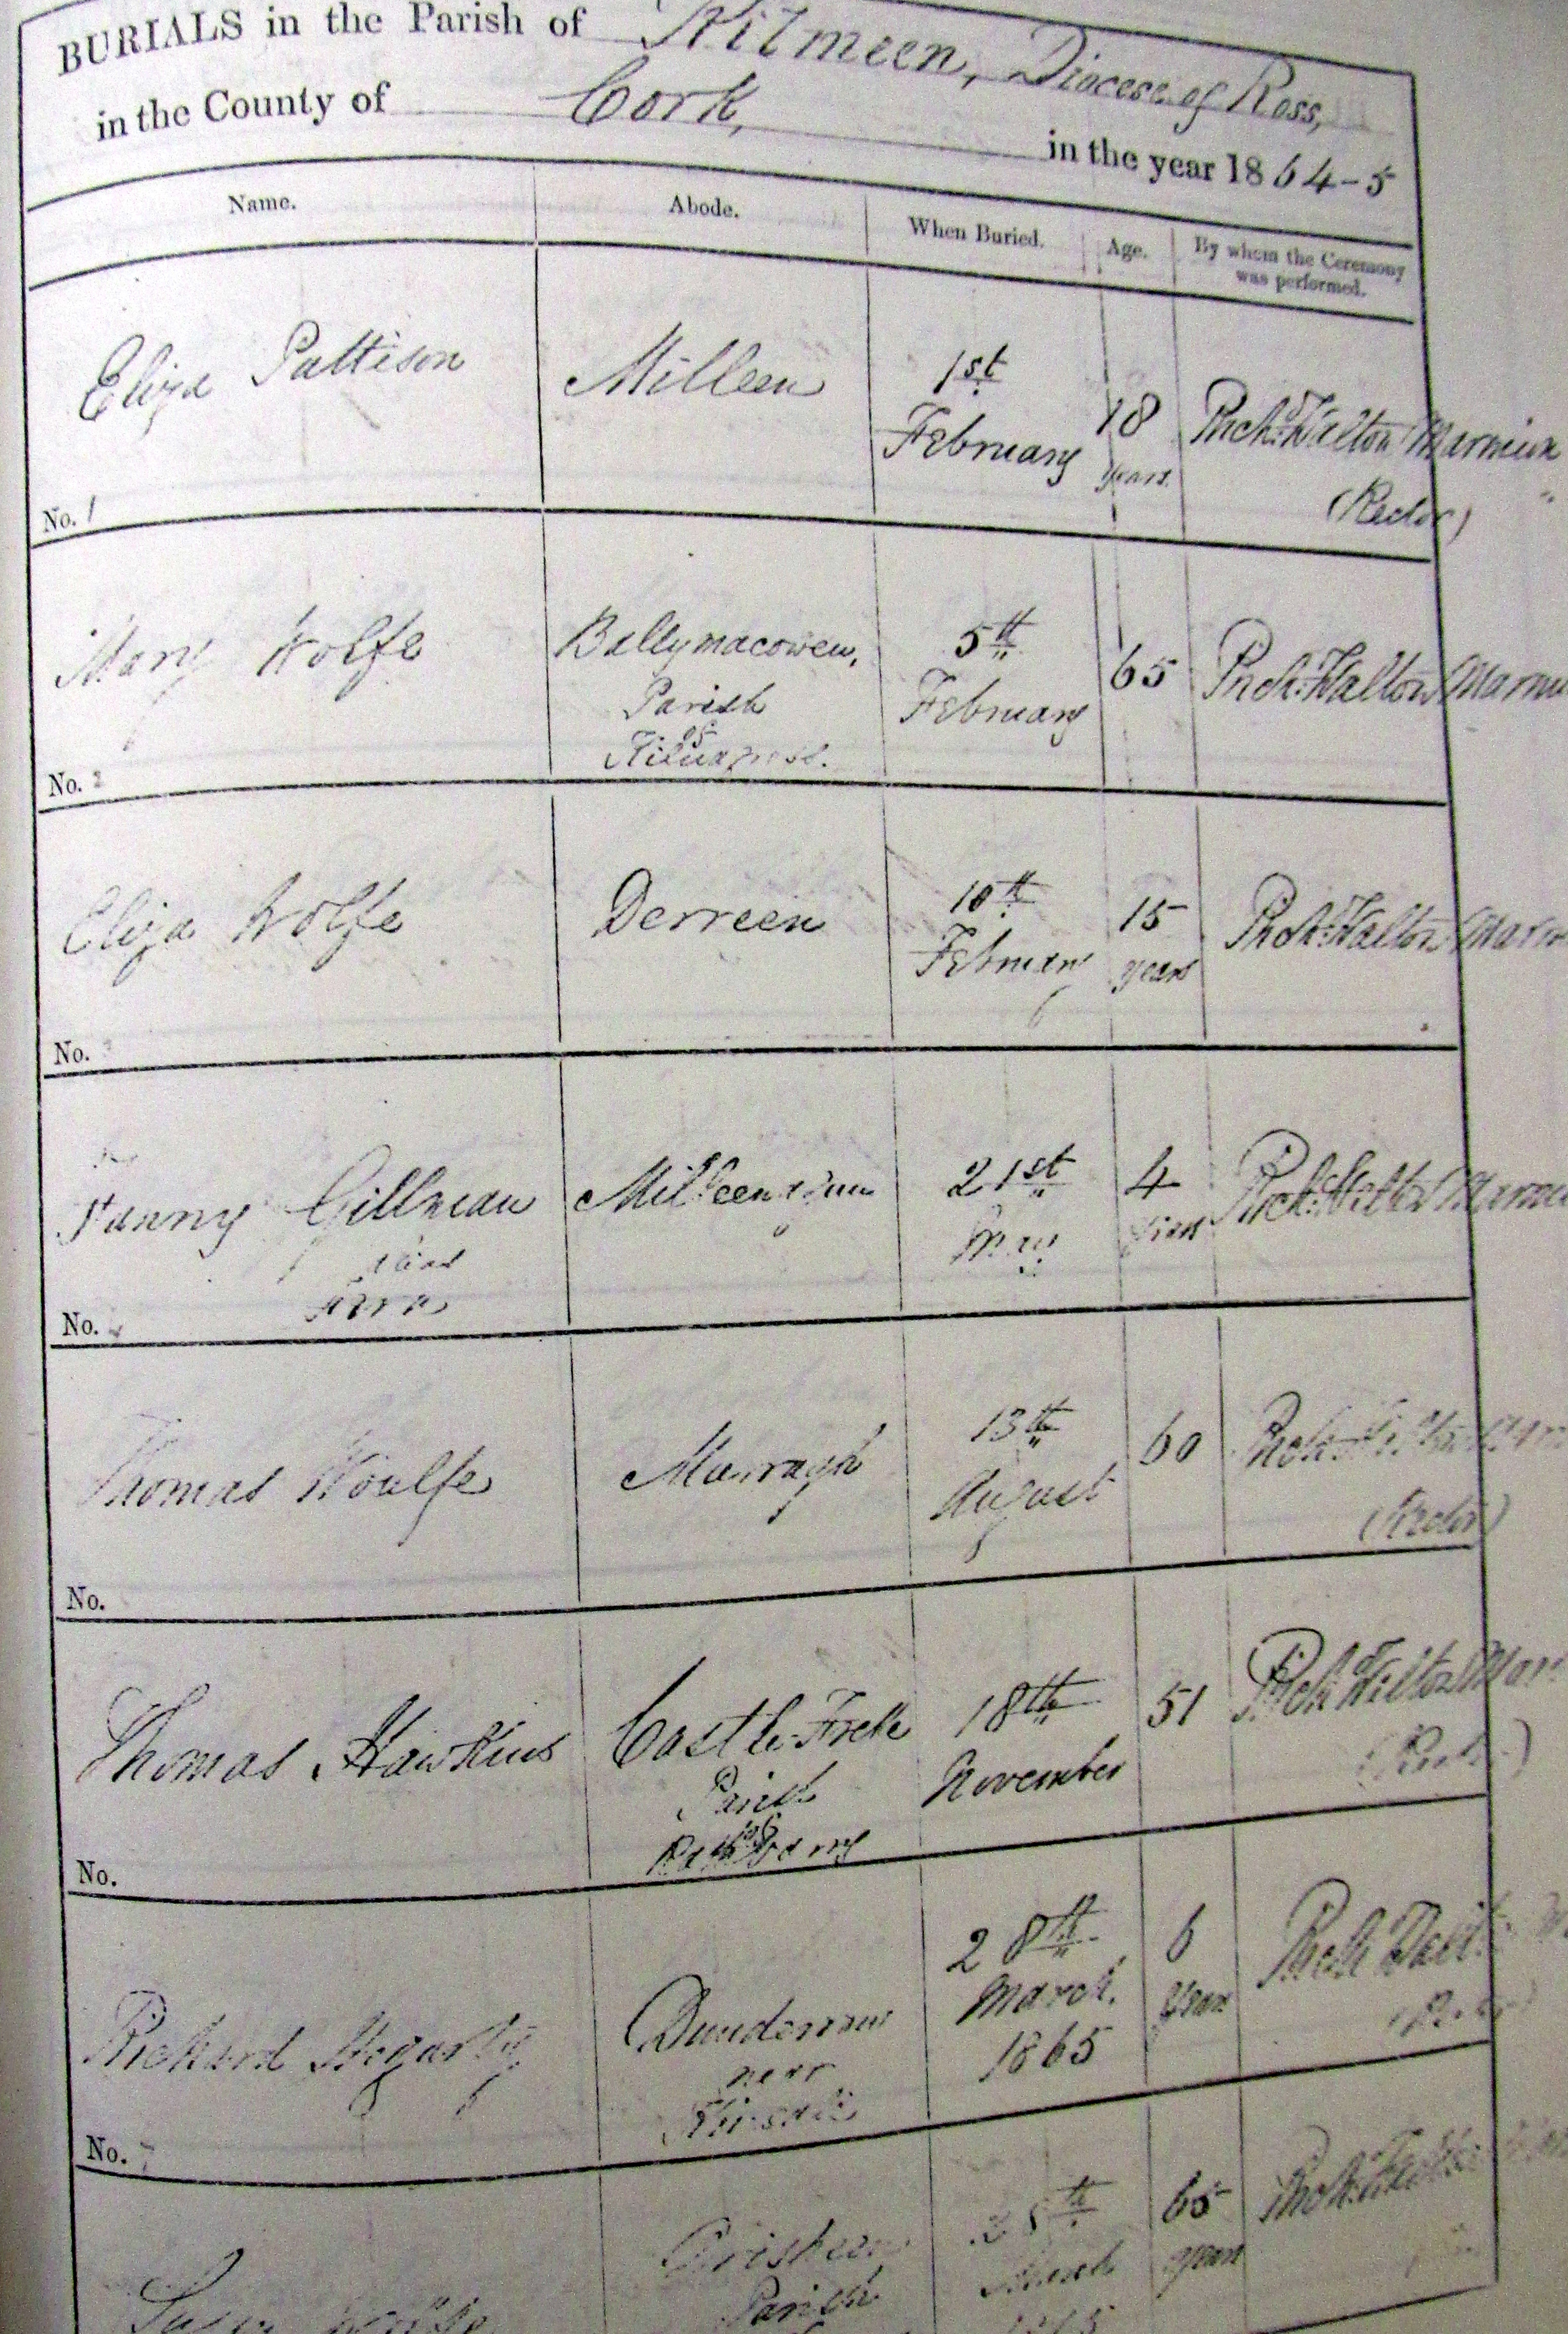 BURIALS in the Parish of Kilmeen, Diocese of Ross,
in the County of Cork, in the year 1864-5
Name. Abode. When Buried. Age. By whom the Ceremony was performed.
Eliza Pattison Milleen 1st February 18 years Richd. Walton Marmion
(Rector)
No. 1
Mary Wolfe Ballymacowen, 5th February 65 Richd. Walton
Parish
of
No. 2
Eliza Wolfe Derreen 10th February 15 years Richd. Walton
No.
Fanny Gillman 21st 4 years Richd. Walton
No.
Thomas Woulfe Murragh 13th August 60 Richd.
(Rector)
No.
Thomas Hawkins Castle-Freke 18th November 51 Richd. Walton
Parish
of
Rathbarry
No.
Richard Hegarty Dunderrow 28th March, 1865 6 years Richd.
near
Kinsale
No. 7
28th March 65 years Richd.
Parish